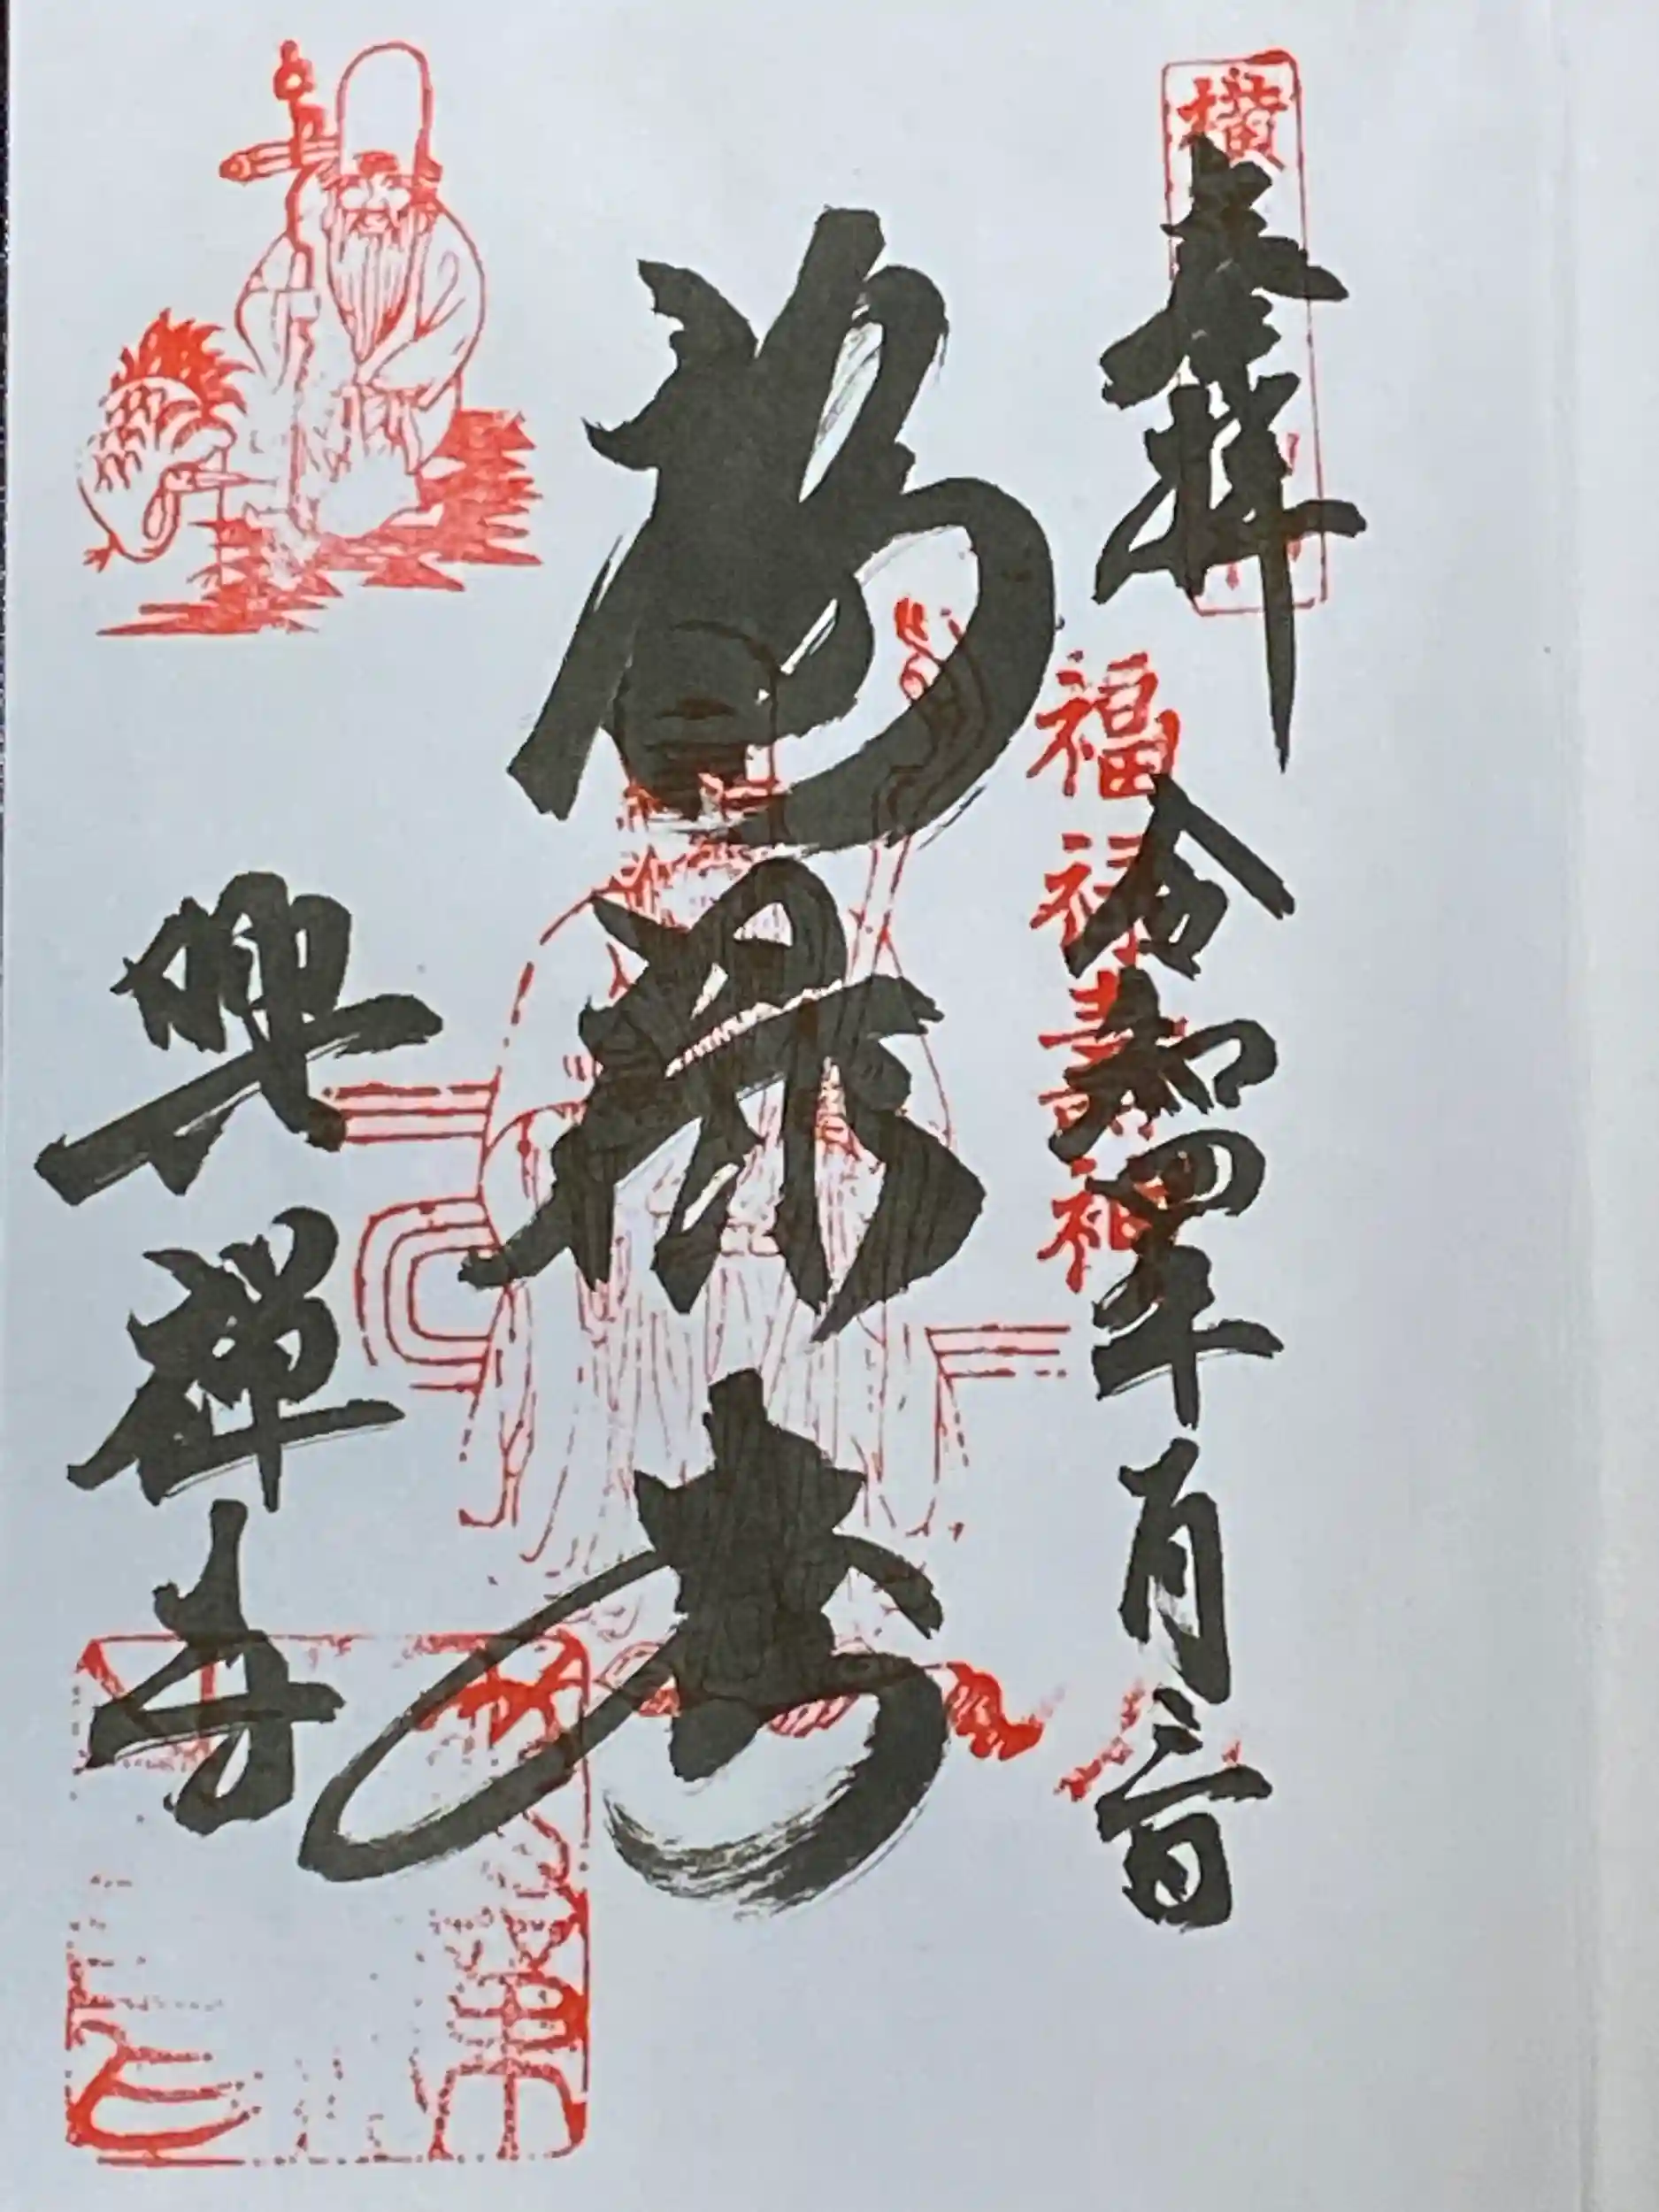 横
奉拝
福禄寿神
令和四年一月三日
福禄寿
興禅寺